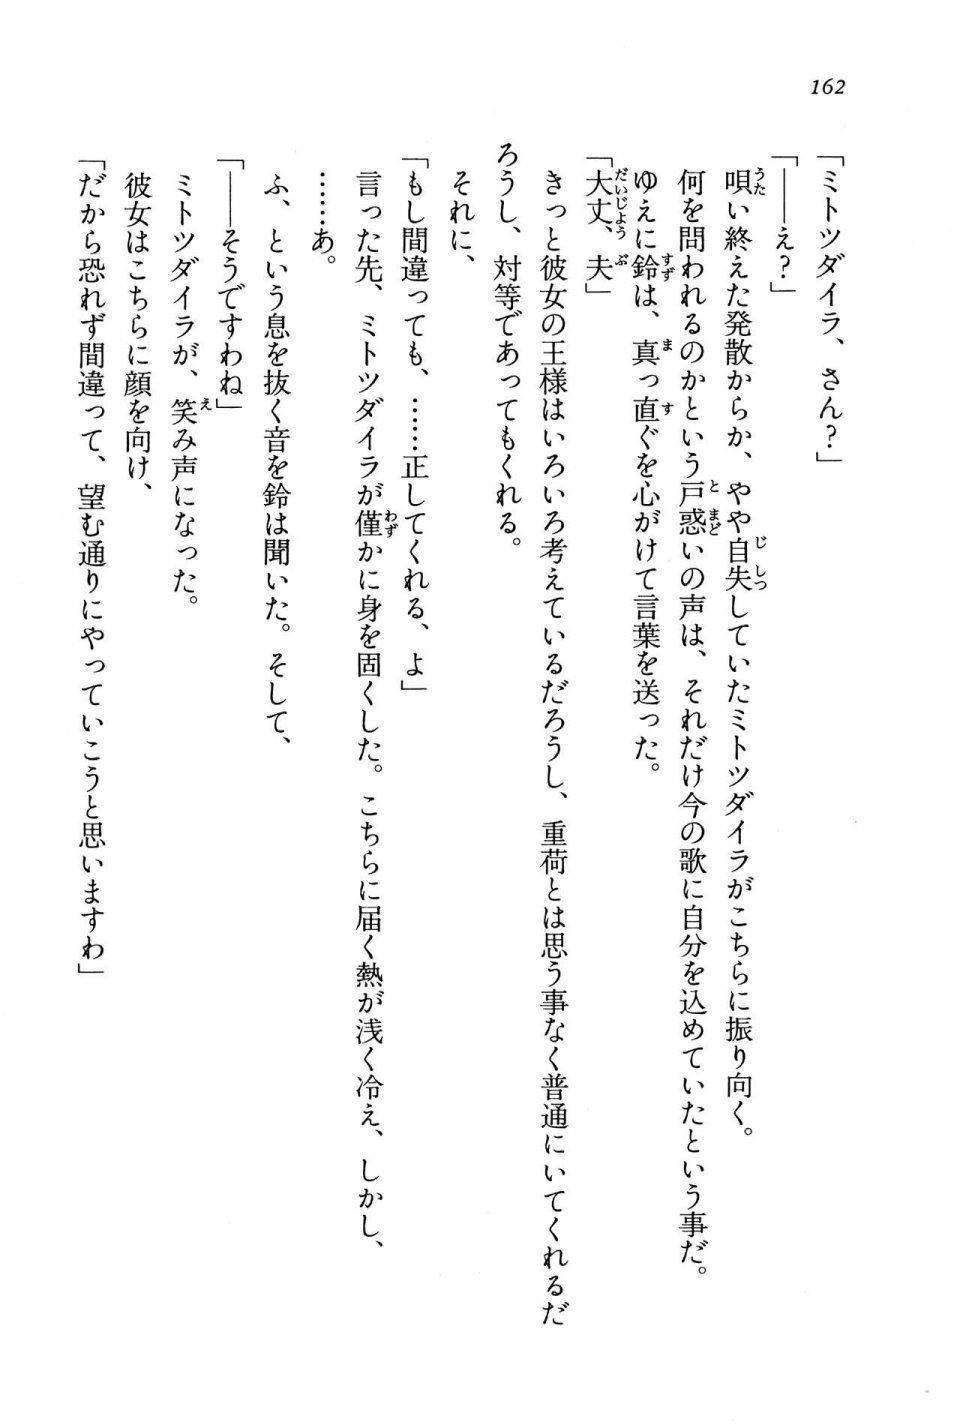 162
「ミトツダイラ、さん？」
「――え？」
唄い終えた発散からか、やや自失していたミトツダイラがこちらに振り向く。
何を問われるのかという戸惑いの声は、それだけ今の歌に自分を込めていたという事だ。
ゆえに鈴は、真っ直ぐを心がけて言葉を送った。
「大丈、夫」
きっと彼女の王様はいろいろ考えているだろうし、重荷とは思う事なく普通にいてくれるだ
ろうし、対等であってもくれる。
それに、
「もし間違っても、……正してくれる、よ」
言った先、ミトツダイラが僅かに身を固くした。こちらに届く熱が浅く冷え、しかし、
……あ。
ふ、という息を抜く音を鈴は聞いた。そして、
「――そうですわね」
ミトツダイラが、笑み声になった。
彼女はこちらに顔を向け、
「だから恐れず間違って、望む通りにやっていこうと思いますわ」